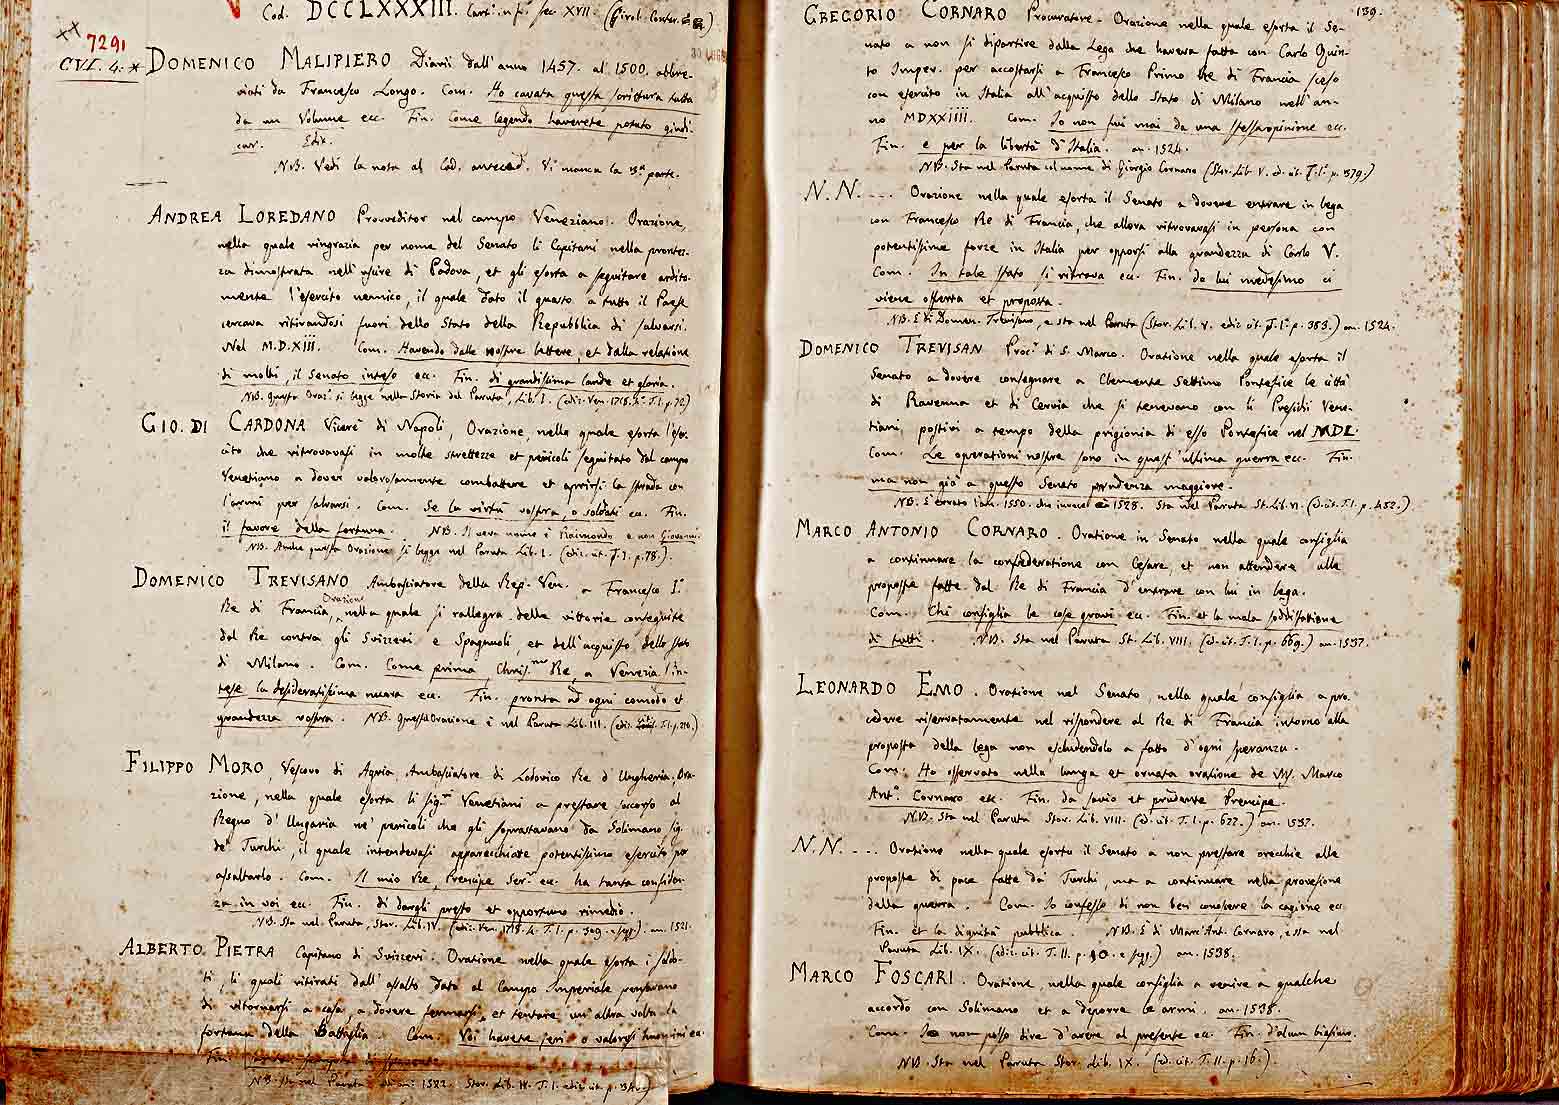 Cod. DCCLXXXIII. Cart. in f. sec. XVII. (Girol. Contar.)
7291
CVI. 4. * DOMENICO MALIPIERO Diarii dall'anno 1457. al 1500. abbre-
viati da Francesco Longo. Com. Ho cavata questa scrittura tutta
da un Volume ecc. Fin. Come legendo haverete potuto giudi-
car. Edit.
NB. Vedi la nota al Cod. anteced. Vi manca la 13.a parte.
ANDREA LOREDANO Proveditor nel campo Veneziano. Orazione,
nella quale ringrazia per nome del Senato li Capitani nella prontez-
za dimostrata nell'uscire di Padova, et gli esorta a seguitare ardita-
mente l'esercito nemico, il quale dato il guasto a tutto il Paese
cercava ritirandosi fuori dello Stato della Repubblica di salvarsi.
Nel M.D.XIII. Com. Havendo dalle vostre lettere, et dalla relatione
di molti, il Senato inteso ecc. Fin. di grandissima laude et gloria.
NB. Questa Oraz. si legge nella Storia del Paruta, Lib. I. (ediz. Ven. 1718. 4.° T. I. p. 72)
GIO. DI CARDONA Vicerè di Napoli, Orazione, nella quale esorta l'eser-
cito che ritrovavasi in molte strettezze et pericoli seguitato dal campo
Venetiano a dover valorosamente combattere et aprirsi la strada con
l'armi per salvarsi. Com. Se la virtù vostra, o soldati ecc. Fin.
il favore della fortuna. NB. Il vero nome è Raimondo e non Giovanni.
NB. Anche questa Orazione si legge nel Paruta Lib. I. (ediz. cit. T. I. p. 78.).
DOMENICO TREVISANO Ambasciatore della Rep. Ven. a Francesco I.°
Re di Francia, Orazione nella quale si rallegra della vittoria conseguita
dal Re contra gli Svizzeri e Spagnuoli, et dell'acquisto dello stato
di Milano. Com. Come prima, Chris.mo Re, a Venezia s'in-
tese la desideratissima nuova ecc. Fin. pronta ad ogni comodo et
grandezza vostra. NB. Questa Orazione è nel Paruta Lib. III. (ediz. cit. T. I. p. 210.)
FILIPPO MORO, Vescovo di Agria, Ambasciatore di Lodovico Re d'Ungheria. Ora-
zione, nella quale esorta li sig.ri Venetiani a prestare soccorso al
Regno d'Ungaria ne' pericoli che gli soprastavano da Solimano sig.
de' Turchi, il quale intendevasi apparecchiare potentissimo esercito per
assaltarlo. Com. Il mio Re, Prencipe Ser.mo ecc. ha tanta confiden-
za in voi ecc. Fin. di dargli presto et opportuno rimedio.
NB. Sta nel Paruta, Stor. Lib. IV. (ediz. Ven. 1718. 4. T. I. p. 309. e segg.). an. 1521.
ALBERTO PIETRA Capitano di Svizzeri. Oratione nella quale esorta i solda-
ti, li quali ritirati dall'assalto dato al Campo Imperiale pensavano
di ritornarsi a casa, a dovere fermarsi, et tentare un'altra volta la
fortuna della Battaglia. Com. Voi havete jeri o valorosi huomini ec.
Fin.
NB. Sta nel Paruta all'an. 1522. Stor. Lib. IV. T. I. ediz. cit. p.
139.
GREGORIO CORNARO Procuratore. Orazione nella quale esorta il Se-
nato a non si dipartire dalla Lega che haveva fatta con Carlo Quin-
to Imper. per accostarsi a Francesco Primo Re di Francia sceso
con esercito in Italia all'acquisto dello Stato di Milano nell'an-
no MDXXIIII. Com. Io non fui mai da una stessa opinione ecc.
Fin. e per la libertà d'Italia. an. 1524.
NB. Sta nel Paruta col nome di Giorgio Cornaro (Stor. Lib. V. ed. cit. T. I. p. 379.)
N. N. .... Orazione nella quale esorta il Senato a dovere entrare in lega
con Francesco Re di Francia, che allora ritrovavasi in persona con
potentissime forze in Italia per opporsi alla grandezza di Carlo V.
Com. In tale stato si ritrova ec. Fin. da lui medesimo ci
viene offerta et proposta.
NB. È di Domen. Trevisano, e sta nel Paruta (Stor. Lib. V. ediz. cit. T. I. p. 383.) an. 1524.
DOMENICO TREVISAN Proc.r di S. Marco. Oratione nella quale esorta il
Senato a dovere consegnare a Clemente Settimo Pontefice le città
di Ravenna et di Cervia che si tenevano con li Presidi Vene-
tiani, postivi a tempo della prigionia di esso Pontefice nel MDL.
Com. Le operationi nostre sono in quest'ultima guerra ecc. Fin.
ma non già a questo Senato prudenza maggiore.
NB. È errato l'an. 1550. che invece è 1528. Sta nel Paruta St. Lib. VI. (ed. cit. T. I. p. 452.).
MARCO ANTONIO CORNARO. Oratione in Senato nella quale consiglia
a continuare la confederatione con Cesare, et non attendere alle
proposte fatte dal Re di Francia d'entrare con lui in lega.
Com. Chi consiglia le cose gravi ec. Fin. et la mala soddisfatione
di tutti. NB. Sta nel Paruta St. Lib. VIII. (ed. cit. T. I. p. 669.) an. 1537.
LEONARDO EMO. Oratione nel Senato, nella quale consiglia a pro-
cedere riservatamente nel rispondere al Re di Francia intorno alla
proposta della lega non escludendolo a fatto d'ogni speranza.
Com. Ho osservato nella lunga et ornata oratione de Ms. Marco
Ant.° Cornaro etc. Fin. da savio et prudente Prencipe.
NB. Sta nel Paruta Stor. Lib. VIII. (ed. cit. T. I. p. 622.) an. 1537.
N. N. .... Oratione nella quale esorta il Senato a non prestare orecchie alle
proposte di pace fatte da' Turchi, ma a continuare nella provesione
della guerra. Com. Io confesso di non ben conoscere la cagione ecc
Fin. et la dignità pubblica. NB. È di Marc'Ant. Cornaro, e sta nel
Paruta Lib. IX. (ediz. cit. T. II. p. 10. e segg.). an. 1538.
MARCO FOSCARI. Oratione, nella quale consiglia a venire a qualche
accordo con Solimano et a deporre le armi. an. 1538.
Com. Io non posso dire d'avere al presente ec. Fin. d'alcun biasimo.
NB. Sta nel Paruta Stor. Lib. IX. (ed. cit. T. II. p. 16.).